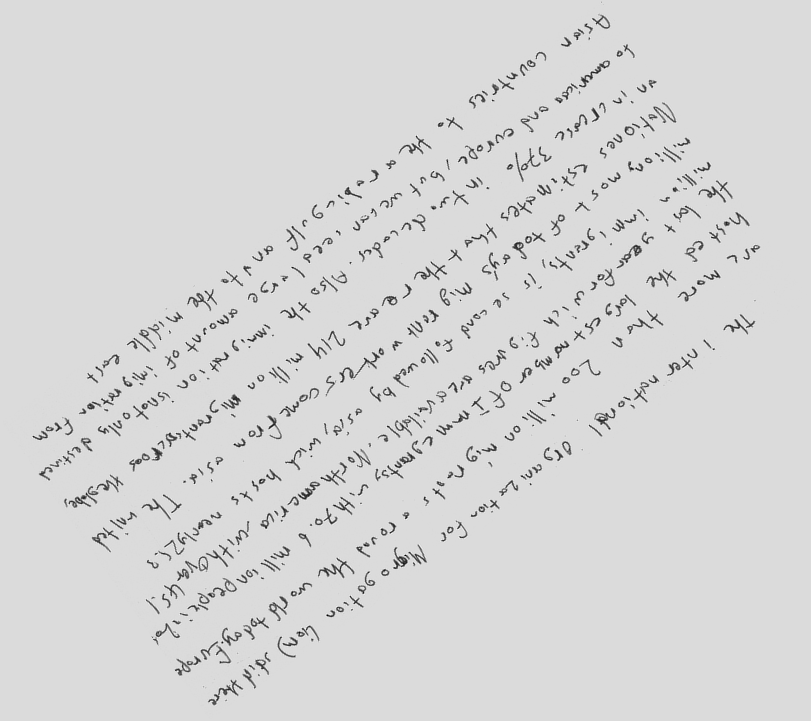 The international Organization for Migrogation (iom) said there
are more than 200 million migrants around the world today. Europe
hosted the largest number of Immegrants, with 70.6 million people in
the last year for wich figures are available. North america, with over 45.1
million immigrants, is second followed by asia, wich hosts nearly 25.3
million, most of todays migrent workers come from asia. The united
Nationes estimates that there are 214 million migrants across the globe,
an increase 37% in two decades. Also the immigration is not only destined
to america and europe, but we can seea large amount of imigration from
Asian countries to the arabic gulf and to the middle east